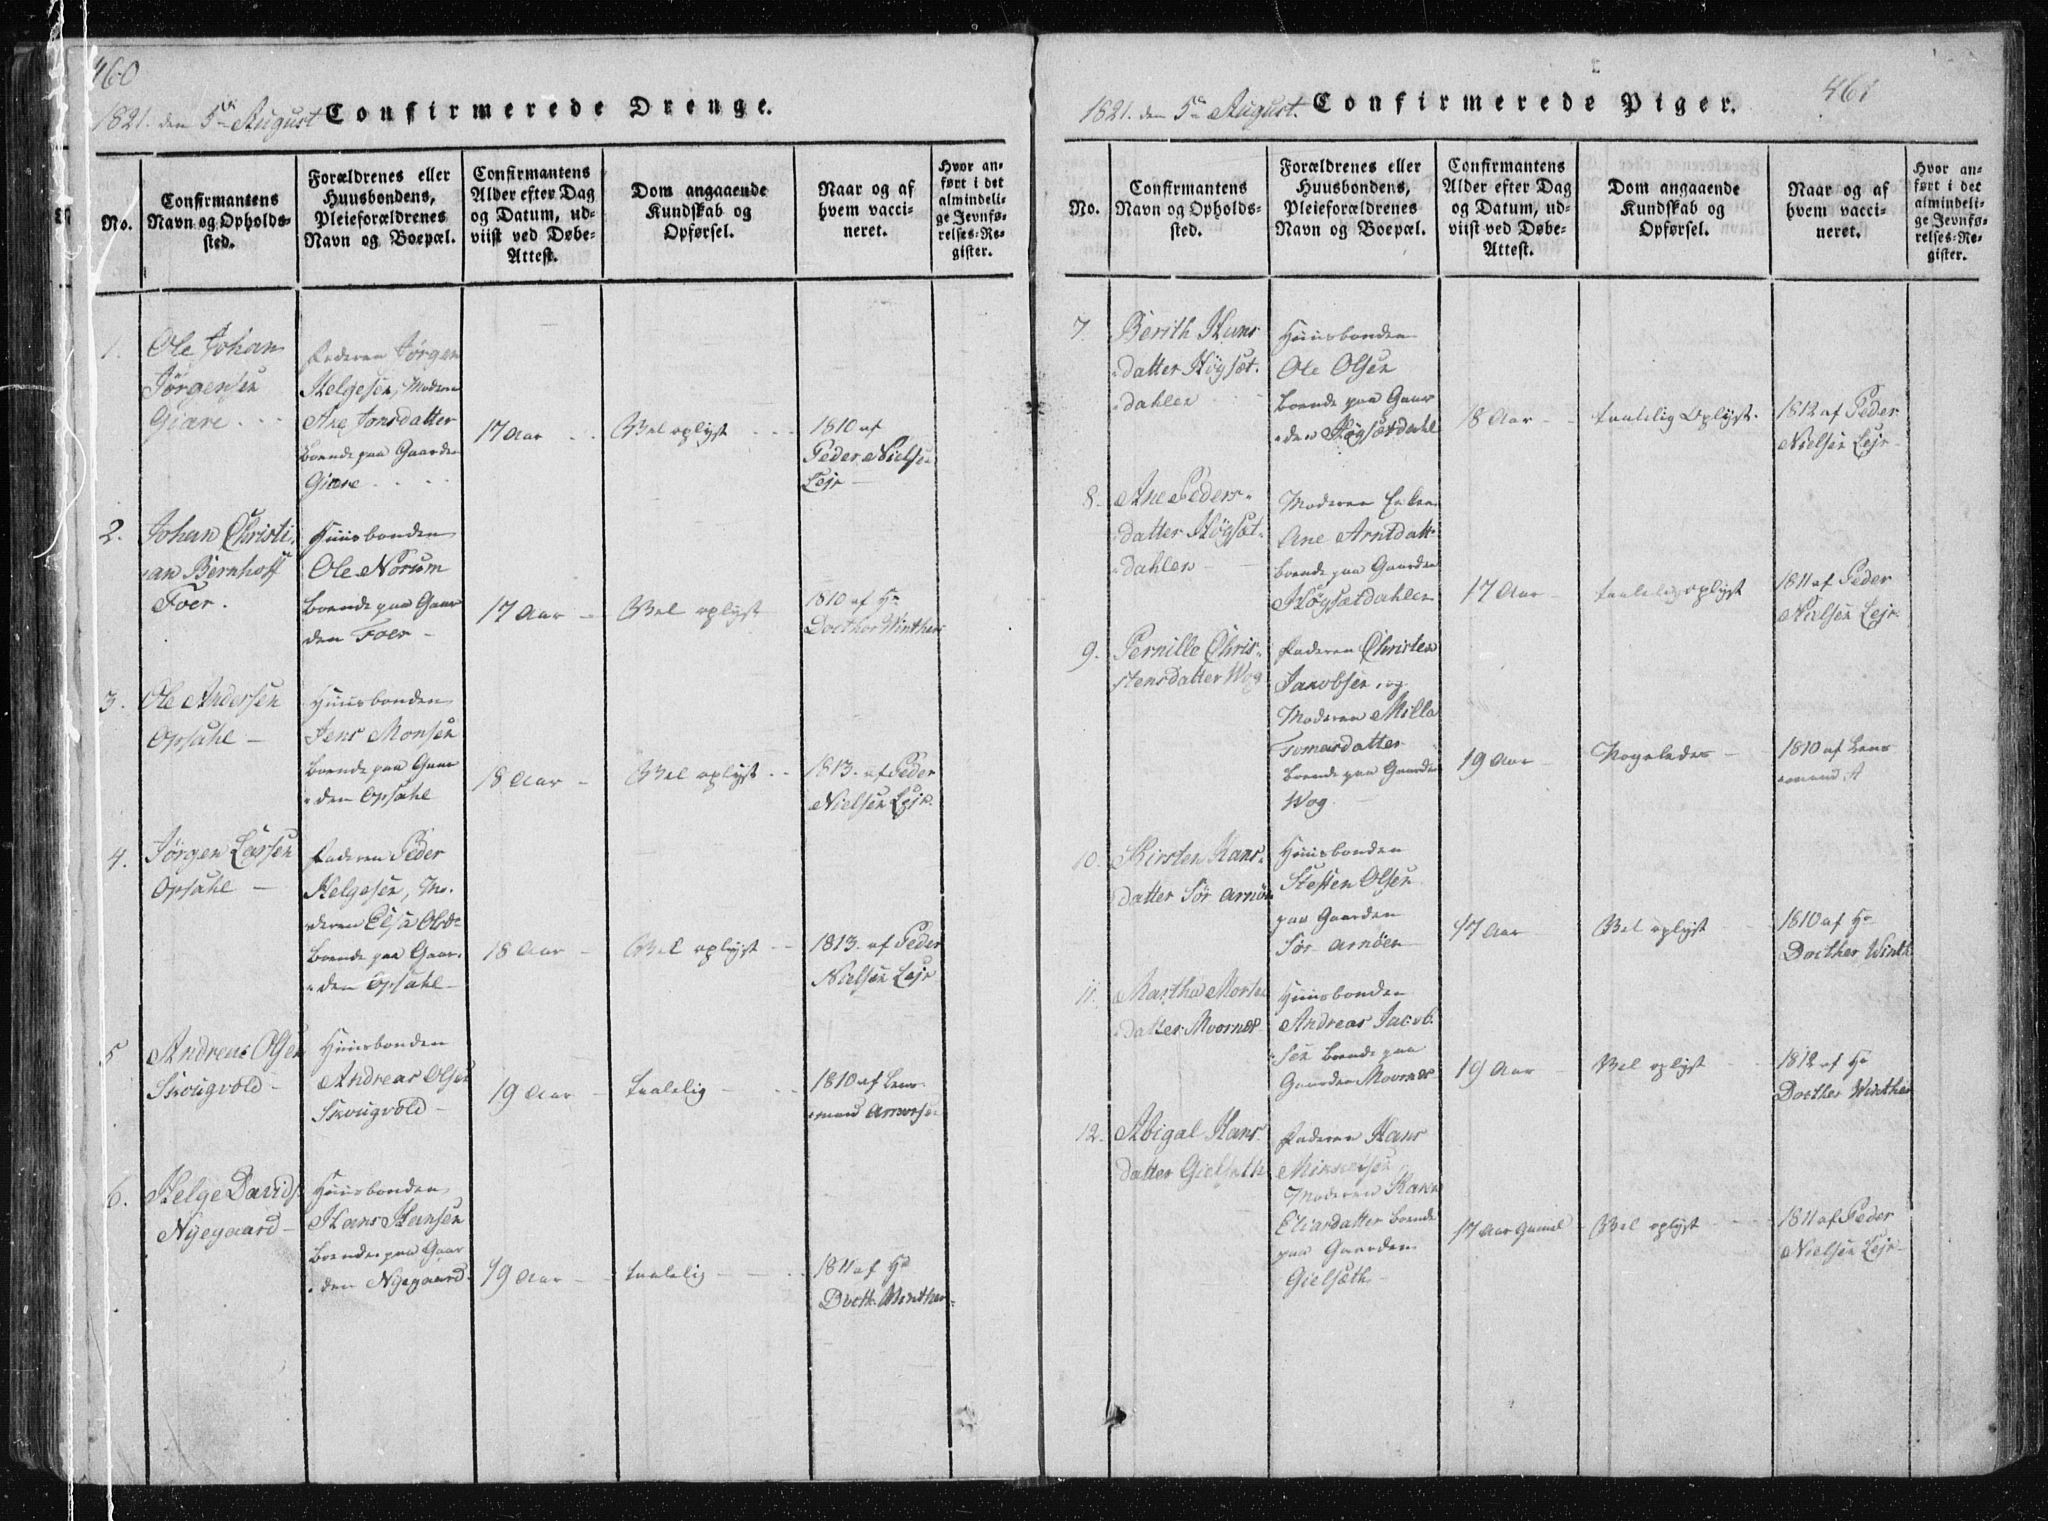 460
1821. den 5te August Confirmerede Drenge.
No.
Confirmantens
Navn og Opholds-
sted.
Forældrenes eller
Huusbondens,
Pleieforældrenes
Navn og Boepæl.
Confirmantens
Alder efter Dag
og Datum, ud-
viist ved Døbe-
Attest.
Dom angaaende
Kundskab og
Opførsel.
Naar og af
hvem vacci-
neret.
Hvor an-
ført i det
almindeli-
ge Jevnfø-
relses-Re-
gister.
1.
Ole Johan
Jörgensen
Giære
Faderen Jörgen
Helgesen, Moderen
Ane Jonsdatter
boende paa Gaarden
Giære
17 Aar
Vel oplyst
1810 af
Peder Nielsen
Lejr
2.
Johan Christi-
an Bernhoff
Foer.
Huusbonden
Ole Norum
boende paa Gaar
den Foer
17 Aar
Vel oplyst
1810 af Hr
Docthor Winther
3.
Ole Andersen
Opsahl
Huusbonden
Jens Monsen
boende paa Gaar
den Opsahl
18 Aar
Vel oplyst
1813. af Peder
Nielsen Lejr.
4.
Jörgen Larsen
Opsahl
Faderen Peder
Helgesen, Mo-
deren Elsa Olsd-
boende paa Gaar-
den Opsahl
18 Aar
Vel oplyst
1813. af Peder
Nielsen Lejr
5
Andreas Olsen
Skougvold
Huusbonden
Andreas Olsen
Skougvold
19 Aar
taalelig
1810 af Lens-
mand
6.
Helge Davids
Nyegaard
Huusbonden
Hans Hansen
boende paa Gaar
den Nyegaard
19 Aar
taalelig
1811 af Hr
Docth. Winther
461
1821. den 5te August. Confirmerede Piger.
No.
Confirmantens
Navn og Opholds-
sted.
Forældrenes eller
Huusbondens,
Pleieforældrenes
Navn og Boepæl.
Confirmantens
Alder efter Dag
og Datum, ud-
viist ved Døbe-
Attest.
Dom angaaende
Kundskab og
Opførsel.
Naar og af
hvem vacci-
neret.
Hvor an-
ført i det
almindeli-
ge Jevnfø-
relses-Re-
gister.
7.
Berith Hans
datter Höysæt-
dahlen
Huusbonden
Ole Olsen
boende paa Gaar
den Höysætdahl
18 Aar
taalelig oplyst.
1812 af Peder
Nielsen Lejr
8.
Ane Peders-
datter Höysæt-
dahlen
Moderen Enken
Ane Arntdatt-
boende paa Gaarden
Höysætdahlen
17 Aar
taalelig oplyst
1811 af Peder
Nielsen Lejr
9.
Pernille Chris-
stensdatter Wog
Faderen Christen
Jacobsen og
Moderen Milla
Tomasdatter
boende paa Gaarden
Wog.
19 Aar
Nogeledes
1810 af Lens
mand A
10.
Kirsten Hans-
datter Sör Arnöe
Huusbonden
Steffen Olsen
paa Gaarden
Sör Arnöen
17 Aar
Vel oplyst
1810 af Hr
Docther Winth
11.
Martha Morten
datter Moornes
Huusbonden
Andreas Jacob-
sen boende paa
Gaarden Moornes
19 Aar
Vel oplyst
1812 af Hr
Docther Winther
12.
Abigal Hans
datter Gielsæth
Faderen Hans
Moderen Karen
Eliasdatter boende
paa Gaarden
Gielsæth
17 Aar Gamel
Vel oplyst
1811 af Peder
Nielsen Lejr